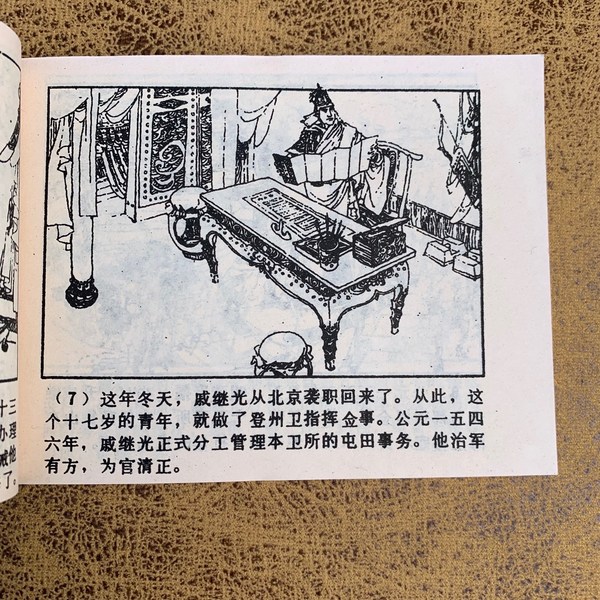 十三
办理
他
了。
（7）这年冬天，戚继光从北京袭职回来了。从此，这
个十七岁的青年，就做了登州卫指挥佥事。公元一五四
六年，戚继光正式分工管理本卫所的屯田事务。他治军
有方，为官清正。